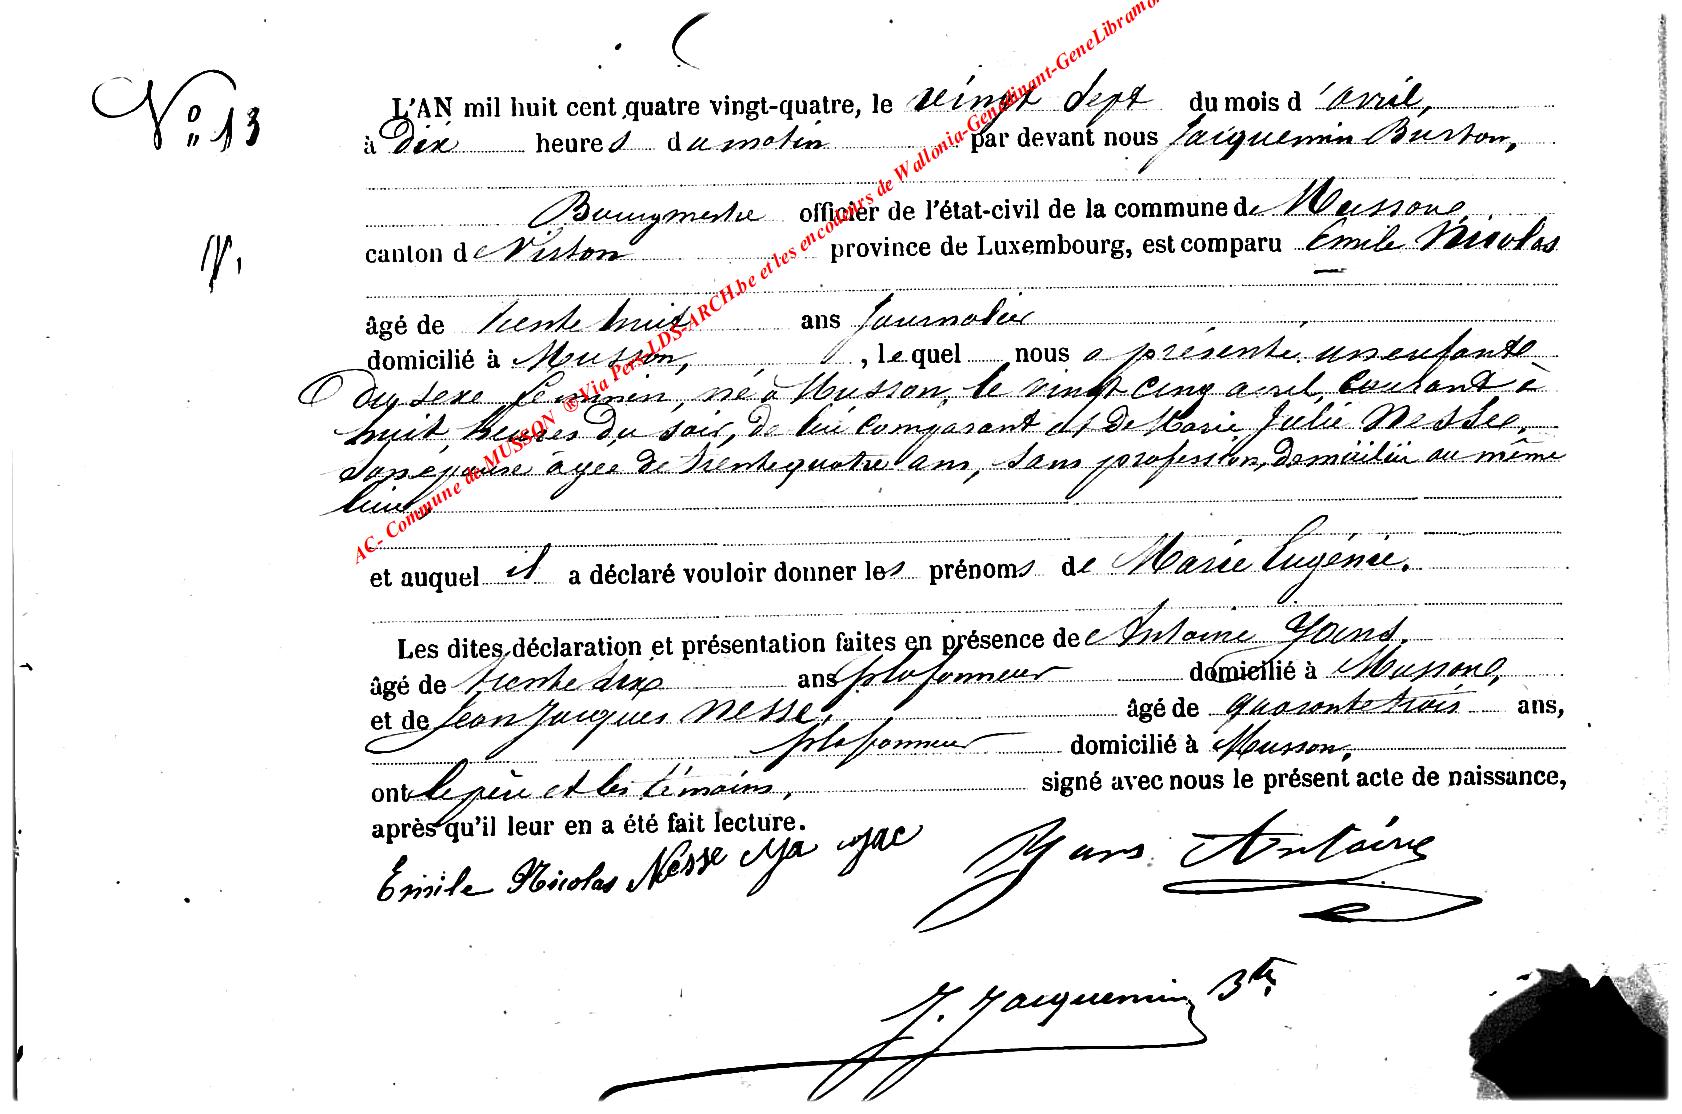 N° 13
L'AN mil huit cent quatre vingt-quatre, le vingt sept du mois d'avril,
à Dix heures du matin par devant nous Jacquemin Burton,
Bourgmestre officier de l'état-civil de la commune de Musson,
canton de Virton province de Luxembourg, est comparu Emile Nicolas
âgé de trente huit ans journalier
domicilié à Musson, , lequel nous a présenté un enfant
du sexe féminin, né à Musson, le vingt-cinq avril courant à
huit heures du soir, de lui comparant et de Marie Julie Nesse,
son épouse âgée de trente quatre ans, sans profession, domicilié au même
lieu,
et auquel il a déclaré vouloir donner les prénoms de Marie Eugénie.
Les dites déclaration et présentation faites en présence de Antoine
âgé de trente dix ans plafonneur domicilié à Musson,
et de Jean Jacques Nesse, âgé de quarante trois ans,
plafonneur domicilié à Musson,
ont le père et les témoins, signé avec nous le présent acte de naissance,
après qu'il leur en a été fait lecture.
Emile Nicolas Nesse Antoine
J. Jacquemin
AC- Commune de MUSSON ®Via Pers.LDS-ARCH.be et les encodeurs de Wallonia-Genedinant-GeneLibramo